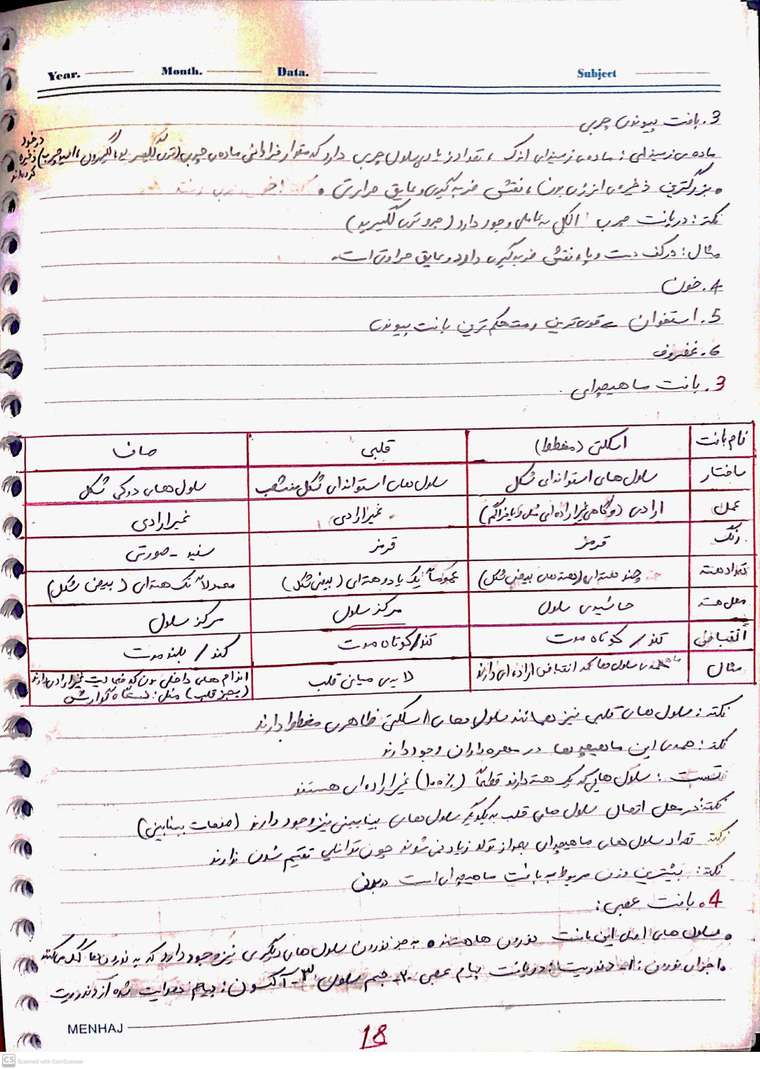 Year. Month. Data. Subject
3. بافت پیوندی چربی
ماده ی زمینه ای: ماده ی زمینه ای اندک، تعداد زیادی سلول چربی دارد که مقدار فراوانی ماده ی چربی (تری گلیسرید) در خود ذخیره کرده اند
بزرگترین ذخیره ی انرژی بدن، نقش ضربه گیری و عایق حرارتی
نکته: در بافت چربی الکل سه عاملی وجود دارد (جزو تری گلیسرید)
مثال: در کف دست و پا، نقش ضربه گیری دارد و عایق حرارتی است.
4. خون
5. استخوان قوی ترین و مستحکم ترین بافت پیوندی
6. غضروف
3. بافت ماهیچه ای
نام بافت اسکلتی (مخطط) قلبی صاف
ساختار سلول های استوانه ای شکل سلول های استوانه ای شکل منشعب سلول های دوکی شکل
عمل ارادی (و گاهی غیرارادی مثل دیافراگم) غیرارادی غیرارادی
رنگ قرمز قرمز سفید - صورتی
تعداد هسته چند هسته ای (هسته های بیضی شکل) عموماً یک یا دو هسته ای (بیضی شکل) معمولاً تک هسته ای (بیضی شکل)
محل هسته حاشیه ی سلول مرکز سلول مرکز سلول
انقباض تند / کوتاه مدت تند / کوتاه مدت کند / بلند مدت
مثال ماهیچه ها که انقباض ارادی دارند لایه ی میانی قلب اندام های داخلی بدن که فعالیت غیرارادی دارند (بجز قلب) مثل: دستگاه گوارش
نکته: سلول های قلبی نیز همانند سلول های اسکلتی ظاهری مخطط دارند
نکته: همه ی این ماهیچه ها در مهره داران وجود دارند
تست: سلول هایی که یک هسته دارند قطعاً (100%) غیرارادی هستند
نکته: در محل اتصال سلول های قلب به یکدیگر سلول های بینابینی نیز وجود دارند (صفحات بینابینی)
نکته تعداد سلول های ماهیچه ای بعد از تولد زیاد نمی شوند چون توانایی تقسیم شدن ندارند
نکته: بیشترین وزن مربوط به بافت ماهیچه ای است در بدن
4. بافت عصبی:
سلول های اصلی این بافت نورون ها هستند به جز نورون سلول های دیگری نیز وجود دارد که به نورون ها کمک می کنند
اجزای نورون: 1- دندریت: دریافت پیام عصبی 2- جسم سلولی 3- آکسون: پیام هدایت شده از دندریت
MENHAJ
18
CS Scanned with CamScanner